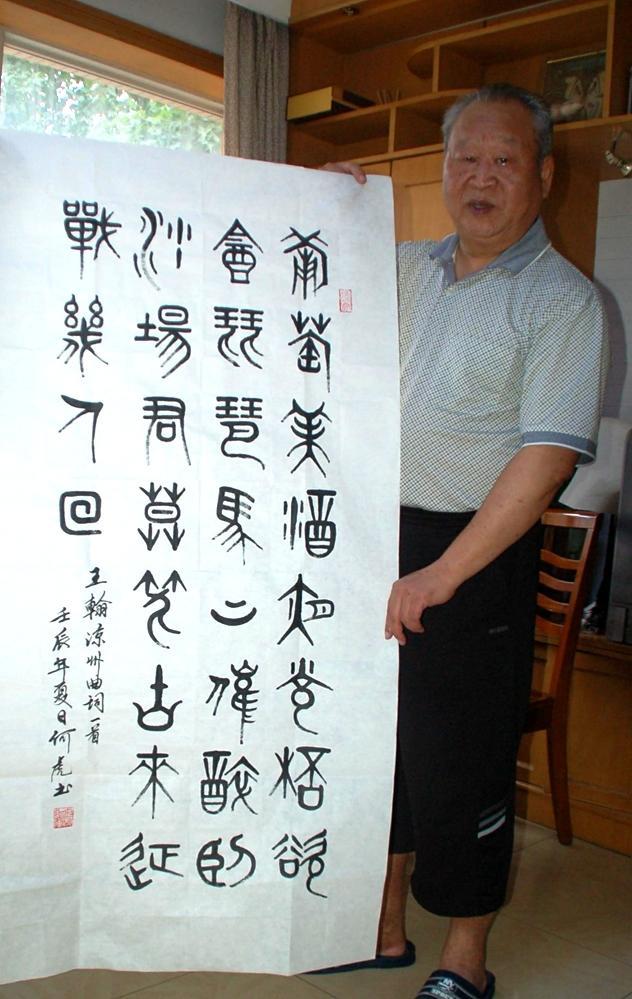 葡萄美酒夜光桮欲
會琵琶馬上催醉臥
沙場君莫笑古來征
戰幾人回
王翰涼州曲詞一首
壬辰年夏日何虎书